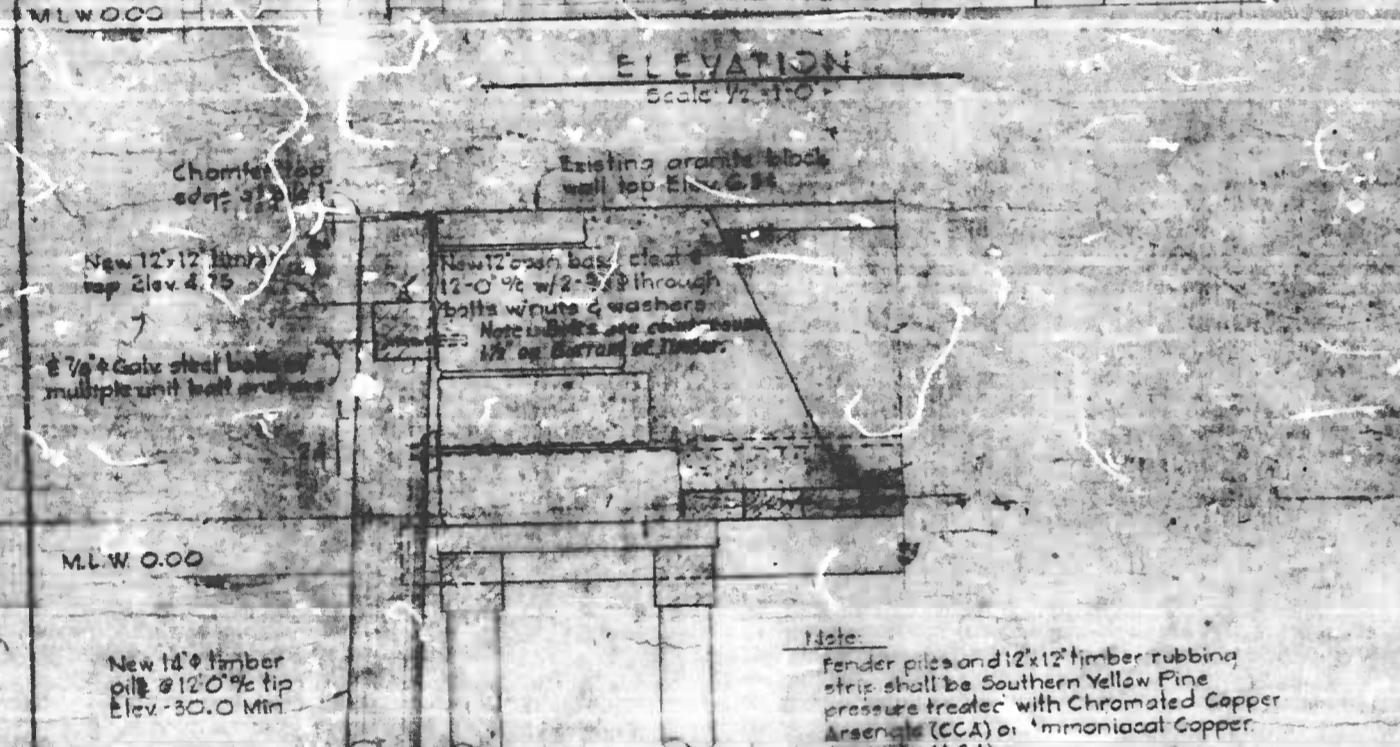 M.L.W 0.00
ELEVATION
Scale 1/2" = 1'-0"
Existing granite block
wall top Elev.
Chamfer top
edge
New 12"x12" timber
top Elev. 4.75
New 12" open base cleat @
12'-0" o/c w/2- through
bolts w/nuts & washers
Note: Bolts are countersunk
1½" on Bottom of Timber.
7/8"ϕ Galv. steel
multiple unit bolt
M.L.W. 0.00
New 14"ϕ timber
pile @ 12'0" o/c tip
Elev. -30.0 Min.
Note:
Fender piles and 12"x12" timber rubbing
strip shall be Southern Yellow Pine
pressure treated with Chromated Copper
Arsenate (CCA) or Ammoniacal Copper